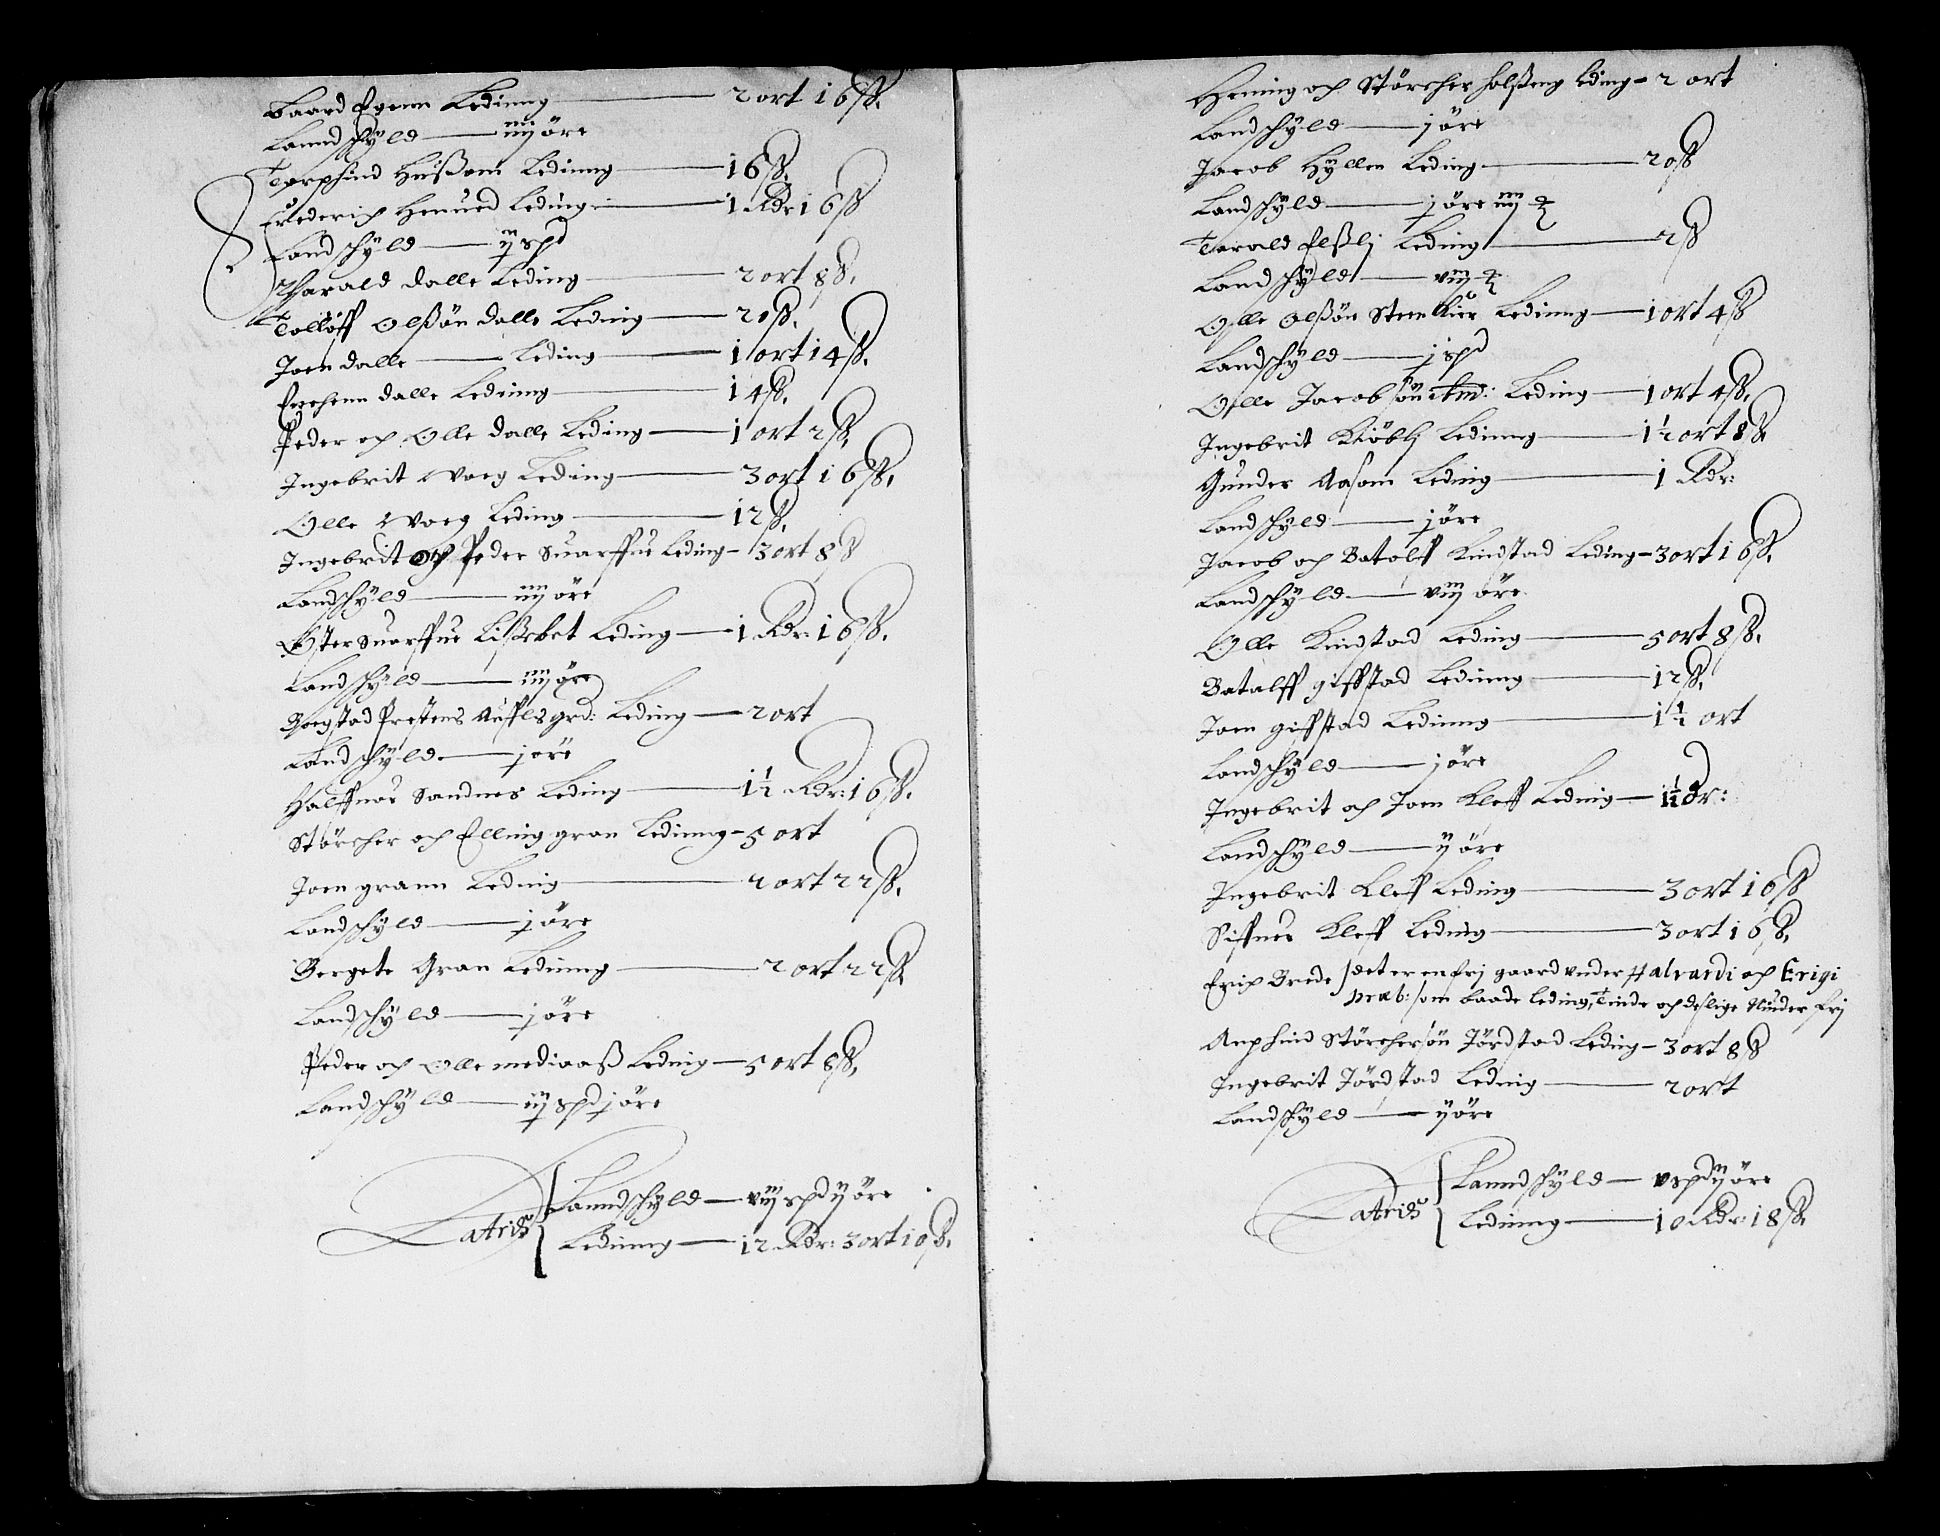 Baard Egenn Ledinng — 2 ort 16 ß.
Lanndschyld — iiij öre
Torphind Hußom Ledinng — 16 ß.
Frederich Hemued Leding — 1 Rdr 16 ß
Landschyld — ij spd
Tharald dalle Leding — 2 ort 8 ß.
Tolloff Olßön dalle Leding — 20 ß.
Joen dalle — Leding — 1 ort 14 ß.
Erechenn dalle Ledinng — 14 ß.
Peder och Olle dalle Leding — 1 ort 2 ß.
Ingebrit Woeg Leding — 3 ort 16 ß.
Olle Woeg Leding — 12 ß.
Ingebrit og Peder Suarffue Leding — 3 ort 8 ß
Landschyld — iiij öre
Öster Suarffue Lißebet Leding — 1 Rdr: 16 ß.
Landschyld — iiij öre
Roegstad Prestens Auffls grd: Leding — 2 ort
Landschyld — j öre
Halffuor Sandnes Leding — 1½ Rdr: 16 ß.
Störcher och Elling gran Ledinng — 5 ort
Joen grann Leding — 2 ort 22 ß.
Landschyld — j öre
Bergete Gran Ledinng — 2 ort 22 ß.
Landschyld — j öre
Peder och Olle mediaaß Leding — 5 ort 8 ß.
Landschyld — iij spd j öre
Lanndschyld — viij spd ij öre
Lateris
Ledinng — 12 Rdr: 3 ort 10 ß.
Hening och Störcher holßeng leding — 2 ort
Landschyld — j öre
Jacob Hyllen Leding — 20 ß
Landschyld — j öre iiij
Torald Elßlj Leding — 2 ß
Landschyld — viij
Olle Olßön Stenkier Ledinng — 1 ort 4 ß
Landschyld — j spd
Olle Jacobsön Leding — 1 ort 4 ß.
Ingebrit Kiöblj Ledinng — 1½ ort 8 ß
Gunder Aasom Leding — 1 Rdr:
Landschyld — j öre
Jacob och Batolff Kindstad Leding — 3 ort 16 ß.
Landschyld — viij öre
Olle Kindstad Leding — 5 ort 8 ß.
Batalff giffstad Ledinng — 12 ß.
Joen giffstad Ledinng — 1½ ort
Landschyld — j öre
Ingebrit och Joen Kleff Leding — 1½ dr:
Landschyld — ij öre
Ingebrit Kleff Leding — 3 ort 16 ß
Siffuer Kleff Leding — 3 ort 16 ß.
Erich Brede det er en frj gaard vnder Halvardi och Erigi
præb: som baade leding, Tinde och deslige Ninder frj
Anphind Störchersön Jördstad Leding — 3 ort 8 ß
Ingebrit Jördstad Leding — 2 ort
Landschyld — ij öre
Lanndschyld — v spd ij öre
Lateris
Ledinng — 10 Rdr: 18 ß.